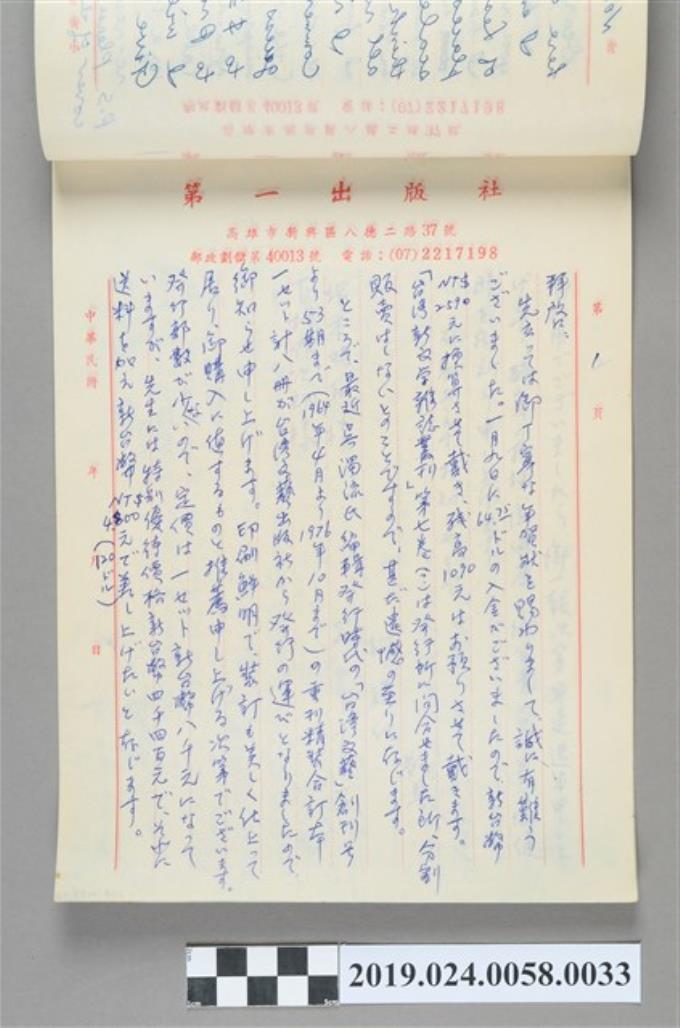 第一出版社
高雄市新興區八德二路37號
郵政劃儲第40013號 電話:(07)2217198
第 1 頁
拝啓、
先だっては御丁寧な年賀状を賜わりまして、誠に有難う
ございました。一月九日に64.75ドルの入金がございましたので、新台幣
NT$2590元に換算させて戴き、残高1090元はお預りさせて戴きます。
「台湾新文学雑誌叢刊」第七巻(二)は発行所に問合せました所、分割
販売はしないとのことですので、甚だ遺憾の至りに存じます。
ところで、最近呉濁流氏編輯発行時代の「台湾文藝」創刊号
より53期まで(1964年4月より1976年10月まで)の重刊精装合訂本
一セット計八冊が台湾文藝出版社から発行の運びとなりましたので
御知らせ申し上げます。印刷鮮明で、装訂も美しく仕上って
居り、御購入に値するものと推薦申し上げる次第でございます。
発行部数が少ないので、定価は一セット新台幣八千元になって
いますが、先生には特別優待価格新台幣四千四百元で、それに
送料を加え新台幣NT$4800元で差し上げたいと存じます。
(120ドル)
中華民國 年 日
2019.024.0058.0033